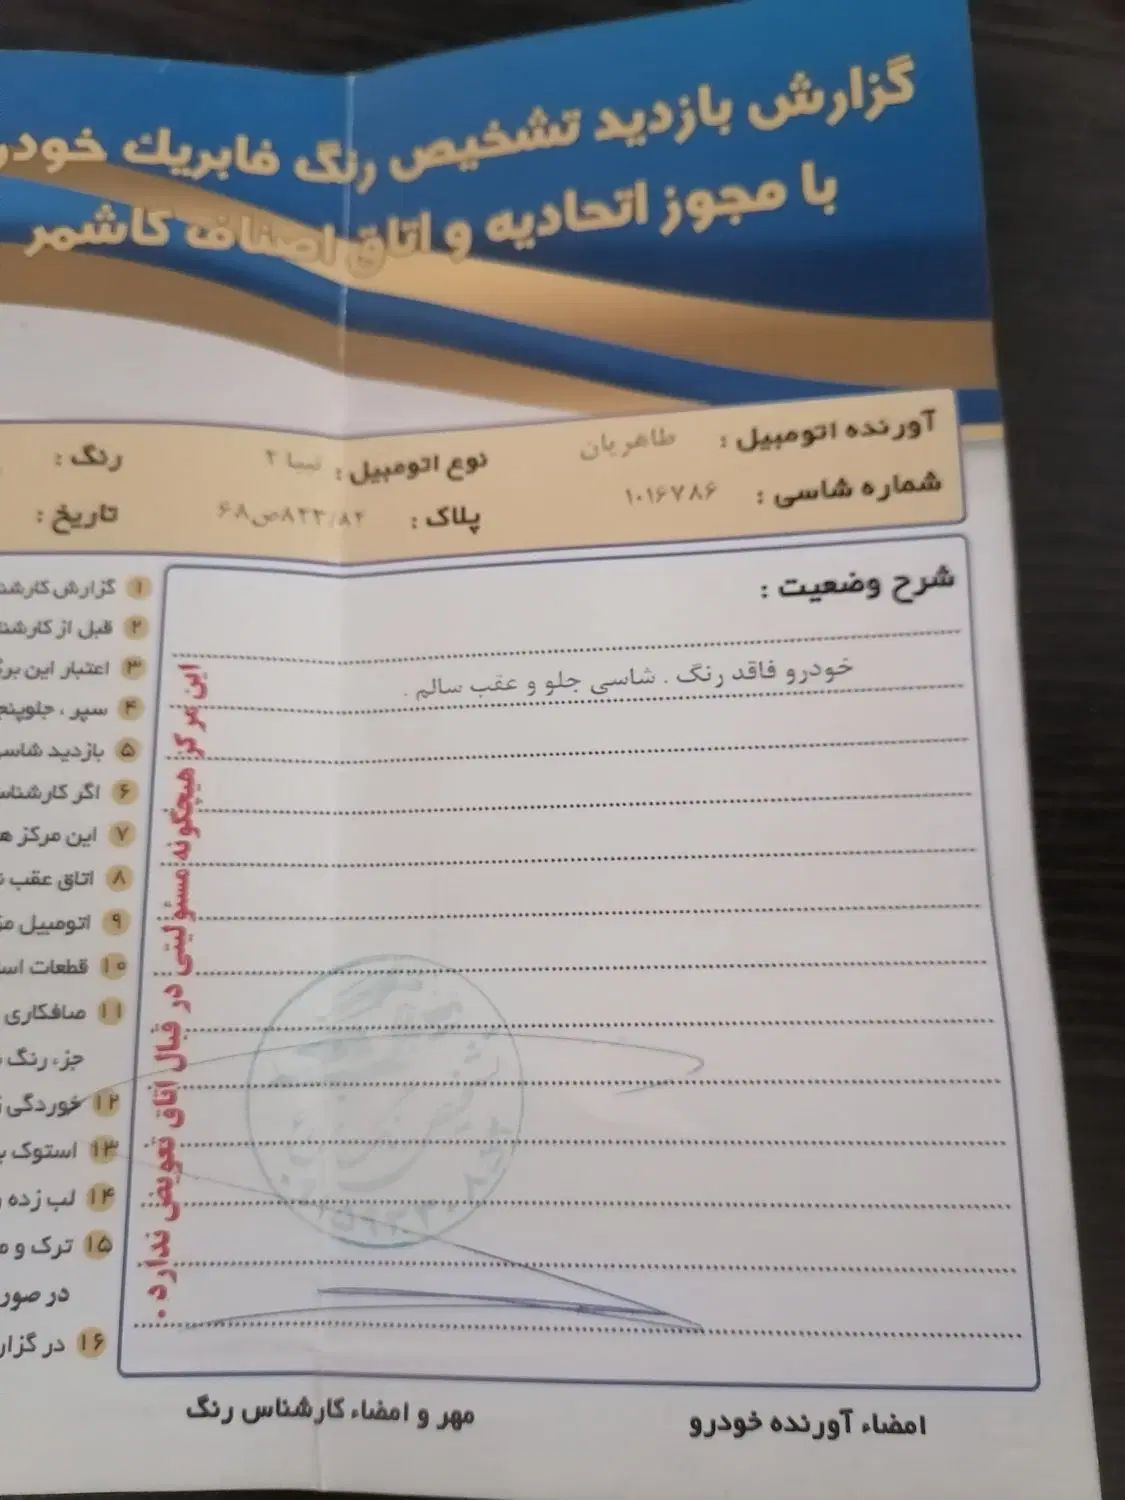 گزارش بازدید تشخیص رنگ فابریك خودر
با مجوز اتحادیه و اتاق اصناف کاشمر
آورنده اتومبیل : طاهریان نوع اتومبیل : تیبا ۲ رنگ :
شماره شاسی : ۱۰۱۶۷۸۶ پلاک : ۸۴/۸۳۳ص۶۸ تاریخ :
شرح وضعیت :
خودرو فاقد رنگ . شاسی جلو و عقب سالم .
این مرکز هیچگونه مسئولیتی در قبال اتاق تعویض ندارد .
۱ گزارش کارشنا
۲ قبل از کارشنا
۳ اعتبار این برگ
۴ سپر ، جلوپنج
۵ بازدید شاسی
۶ اگر کارشناس
۷ این مرکز ه
۸ اتاق عقب
۹ اتومبیل
۱۰ قطعات است
۱۱ صافکاری
جزء رنگ
۱۲ خوردگی
۱۳ استوک
۱۴ لب زده
۱۵ ترک و
در صور
۱۶ در گزار
امضاء آورنده خودرو
مهر و امضاء کارشناس رنگ